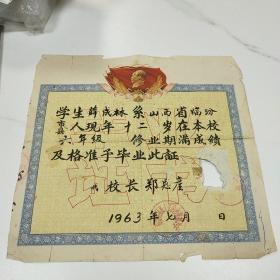 学生薛成林系山西省临汾
市县人现年十二岁在本校
六年级修业期满成绩
及格准予毕业此证
校长郑
1963年七月 日